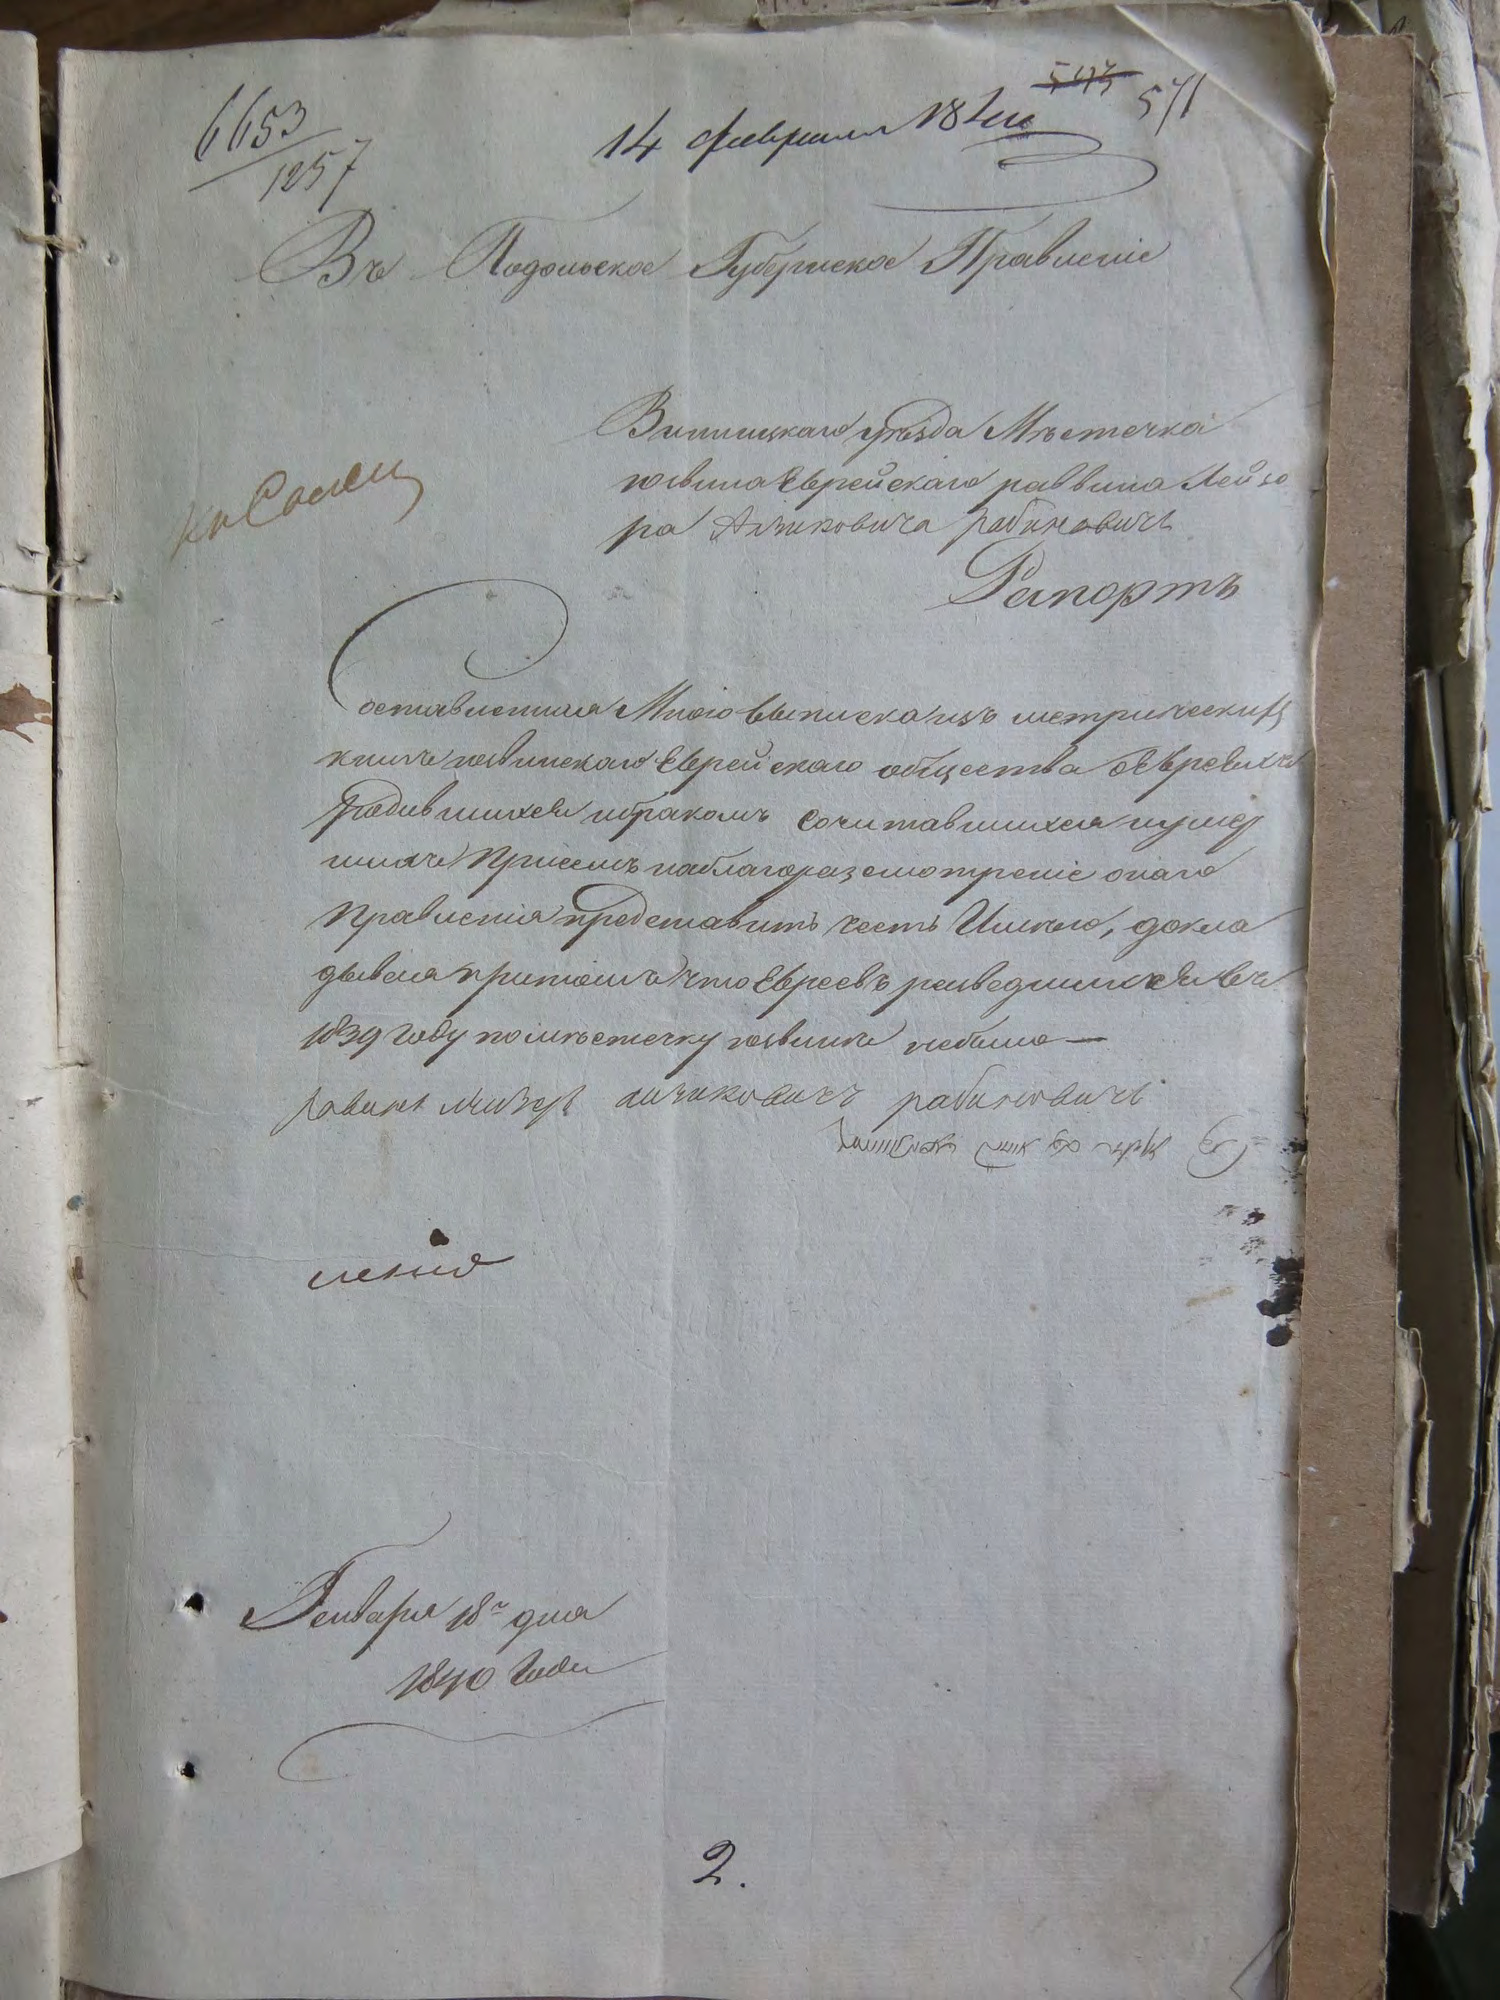 6653
1257
14 февраля 184
543
571
Въ Подольское Губернское Правленіе
Винницкаго уѣзда Мѣстечка
Еврейскаго раввина Лейзо
ра Айзиковича рабиновичъ
Рапортъ
Составленная Мною выписка изъ метрическихъ
книгъ Еврейскаго общества о Евреяхъ
родившихся ибракомъ сочитавшихся иумер
шихъ Присемъ наблагоразсмотреніе онаго
Правленія представить честь Имѣю, докла
дывая притомъ что Евреевъ разведшихся въ
1839 году по мѣстечку небыло —
равинъ лейзоръ айзиковичъ рабиновичъ
Генваря 18 дня
1840 года
2.